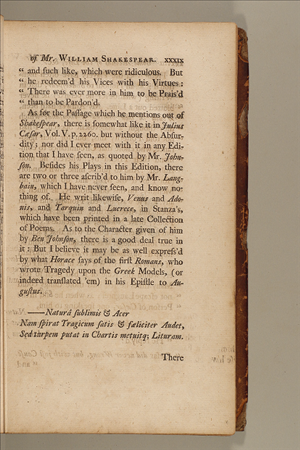 of Mr. WILLIAM SHAKESPEAR. XXXIX
“ and such like, which were ridiculous. But
“ he redeem'd his Vices with his Virtues:
“ There was ever more in him to be Prais'd
“ than to be Pardon'd.
As for the Passage which he mentions out of
Shakespear, there is somewhat like it in Julius
Cæsar, Vol. V. p. 2260. but without the Absur-
dity; nor did I ever meet with it in any Edi-
tion that I have seen, as quoted by Mr. John-
son. Besides his Plays in this Edition, there
are two or three ascrib'd to him by Mr. Lang-
bain, which I have never seen, and know no-
thing of. He writ likewise, Venus and Ado-
nis, and Tarquin and Lucrece, in Stanza's,
which have been printed in a late Collection
of Poems. As to the Character given of him
by Ben Johnson, there is a good deal true in
it: But I believe it may be as well express'd
by what Horace says of the first Romans, who
wrote Tragedy upon the Greek Models, (or
indeed translated 'em) in his Epistle to Au-
gustus.
——Naturâ sublimis & Acer
Nam spirat Tragicum satis & fæliciter Audet,
Sed turpem putat in Chartis metuitq; Lituram.
There